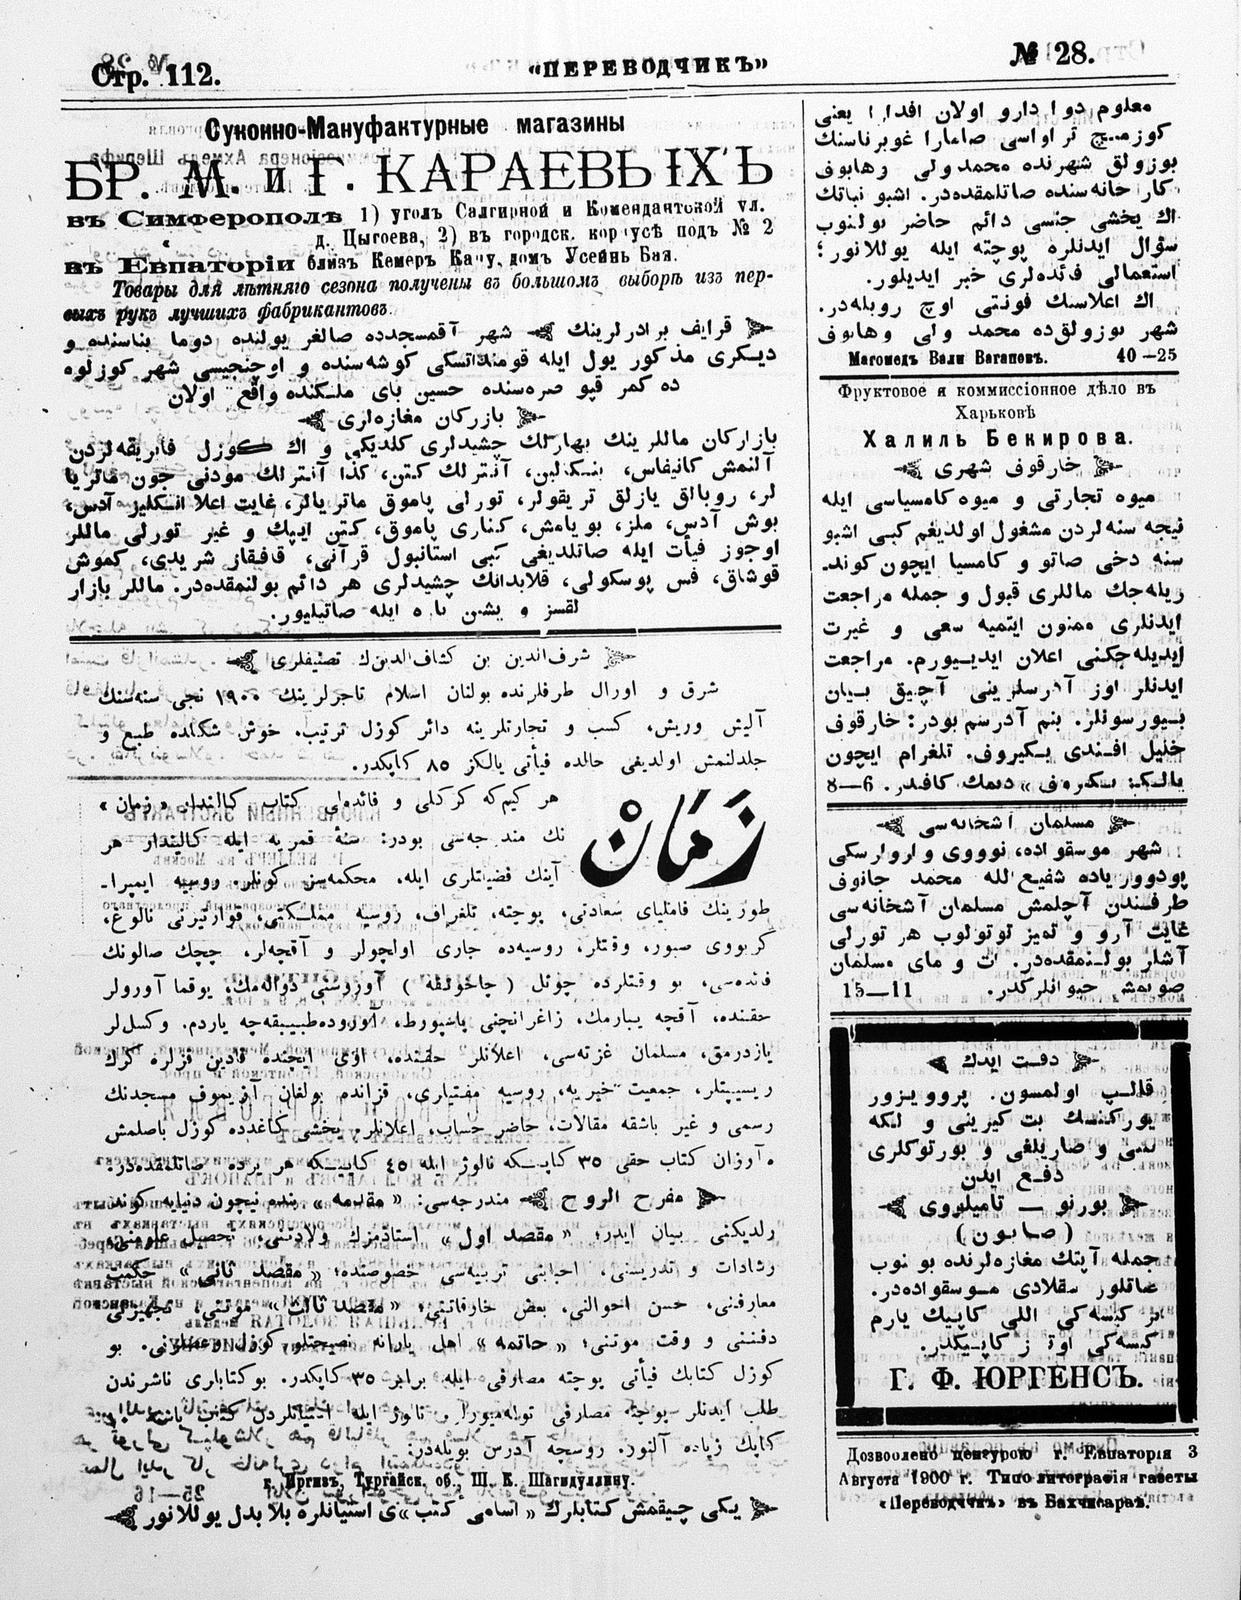 Стр. 112.
«ПЕРЕВОДЧИКЪ»
№ 28.
Суконно-Мануфактурные магазины
БР. М. и Г. КАРАЕВЫХЪ
въ Симферополѣ 1) уголъ Салгирной и Комендантской ул.
д. Цыгоева, 2) въ городск. корпусѣ подъ № 2
въ Евпаторіи близъ Кемеръ Капу, домъ Усейнъ Бая.
Товары для лѣтняго сезона получены въ большомъ выборѣ изъ пер-
выхъ рукъ лучшихъ фабрикантовъ.
قرایف برادرلرینك شهر آقمسجدده صالغر یولنده دوما بناسنده و
دیكری مذكور یول ایله قومنداتسكی كوشه‌سنده و اوچنجیسی شهر كوزلوه
ده كمر قپو صره‌سنده حسین بای ملكنده واقع اولان
بازركان مغازه‌لری
بازاركان ماللرینك بهارلك چشیدلری كلدیكی و اك كوزل فابریقه‌لردن
آلنمش كانیفاس، آنترلك كتن، كذا آنترلك مودنی جون ماتریا
لر، روبالق یازلق تریقولر، تورلی پاموق ماتریالر، غایت اعلا انكلیز آدس،
بوش آدس، ملز، بویامش، كناری پاموق، كتن ایپك و غیر تورلی ماللر
اوجوز فیأت ایله صاتلدیغی كبی استانبول قرآنی، قافیقاز شریدی، كموش
قوشاق، فس پوسكولی، قلابدانك چشیدلری هر دائم بولنمقده‌در. ماللر بازار
لقسز و پشین پاره ایله صاتیلیور.
شرف‌الدین بن كشاف‌الدینك تصنیفلری
شرق و اورال طرفلرنده بولنان اسلام تاجرلرینك ١٩٠٠ نجی سنه‌سنك
آلیش ویریش، كسب و تجارتلرینه دائر كوزل ترتیب، خوش شكلده طبع و
جلدلنمش اولدیغی حالده فیأتی یالكز ٨٥ كاپكدر.
زمان
هر كیم‌كه كركلی و فائده‌لی كتاب كالندار «زمان»
نك مندرجه‌سی بودر: سنهٔ قمریه ایله كالیندار هر
آینك فضیلتلری ایله، محكمه‌سز كونلر. روسیه ایمپرا-
طورینك فاملیای سعادتی، پوچته، تلغراف، روسیه مملكتی، قوارتیرنی نالوغ،
كربووی صبور، وقتلر، روسیه‌ده جاری اولچولر و آقچه‌لر، چچك صالونك
فائده‌سی، بو وقتلرده چوئل (چاخوتقه) آوروسنی دوالمك، یوقما آورولر
حقنده، آقچه یبارمك، زاغرانچنی پاشپورط، آوروده طبیبقه‌چه یاردم. وكسل‌لر
یازدرمق، مسلمان غزته‌سی، اعلانلر حقنده، اوی ایچنده قادین قزلره كرك
ریسیپتلر، جمعیت خیریه، روسیه مفتیاری، قزانده بولغان آزیموف مسجدنك
رسمی و غیر باشقه مقالات، حاضر حساب، اعلانلر. یخشی كاغدده كوزل باصلمش
آرزان كتاب حقی ٣٥ كاپیكه نالوژ ایله ٤٥ كاپیكه هر یرده صاتلمقده‌در.
مفرح الروح مندرجه‌سی: «مقدمه» بنده نیچون دنیایه كوند
رلدیكنی بیان ایدر؛ «مقصد اول» استاذمزك ولادتنی، تحصیل علومنی،
رشادات و تدریسنی، احبابنی تربیه‌سی خصوصنده؛ «مقصد ثانی» حكمت
معارفنی، حسن احوالنی، بعض خارقاتنی؛ «مقصد ثالث» موتنی، تجهیزنی
دفننی و وقت موتنی؛ «خاتمه» اهل یارانه نصیحتلو كوزل وعظلرنی. بو
كوزل كتابك فیأتی پوچته مصارفی ایله برابر ٣٥ كاپكدر. بو كتابلری ناشرندن
طلب ایدنلر پوچته مصارفی توله‌میورلر و نالوژ ایله استیانلردن كتاب باشنه ١٠
كاپك زیاده آلنور. روسچه آدرس بویله‌در:
г. Иргизъ, Тургайск. об. Ш. К. Шагидуллину.
یكی چیقمش كتابلرك «اسامیٔ كتب»ی استیانلره بلا بدل یوللانور
معلوم دوا دارو اولان افدرا یعنی
كوزمیچ تراواسی صامارا غوبرناسنك
بوزولق شهرنده محمد ولی وهابوف
كارخانه‌سنده صاتلمقده‌در. اشبو نباتك
اك یخشی جنسی دائم حاضر بولنوب
سؤال ایدنلره پوچته ایله یوللانور؛
استعمالی فائده‌لری خبر ایدیلور.
اك اعلاسنك فونتی اوچ روبله‌در.
شهر بوزولق‌ده محمد ولی وهابوف
Магомедъ Вали Вагаповъ. 40—25
Фруктовое и коммиссіонное дѣло въ
Харьковѣ
Халиль Бекирова.
خارقوف شهری
میوه تجارتی و میوه كامسیاسی ایله
نیجه سنه‌لردن مشغول اولدیغم كبی اشبو
سنه دخی صاتو و كامسیا ایچون كوند.
ریله‌جك ماللری قبول و جمله مراجعت
ایدنلری ممنون ایتمیه سعی و غیرت
ایدیله‌جكنی اعلان ایدیورم. مراجعت
ایدنلر اوز آدرسلرینی آچیق بیان
بیورسونلر. بنم آدرسم بودر: خارقوف
خلیل افندی بكیروف. تلغرام ایچون
یالكز بكیروف» دیمك كافیدر. 6—8
مسلمان آشخانه‌سی
شهر موسقواده، نوووی واروارسكی
پودووریاده شفیع الله محمد جانوف
طرفندن آچلمش مسلمان آشخانه‌سی
غایت آرو و تمیز توتولوب هر تورلی
آشلر بولنمقده‌در. ات و مای مسلمان
صویمش حیوانلركدر. 11—15
دقت ایدك
قالپ اولمسون. پروویزور
یورگنسك بت كیرینی و لكه
سنی و صاریلغی و بورتوكلری
دفع ایدن
بورنو — تامیلووی
(صابون)
جمله آپتك مغازه‌لرنده بولنوب
صاتلور سقلادی موسقواده‌در.
بر كیسه‌كی اللی كاپیك یارم
كیسه‌كی اوتوز كاپیكدر.
Г. Ф. ЮРГЕНСЪ.
Дозволено цензурою г. Евпаторія 3
Августа 1900 г. Типо литографія газеты
«Переводчикъ» въ Бахчисараѣ.